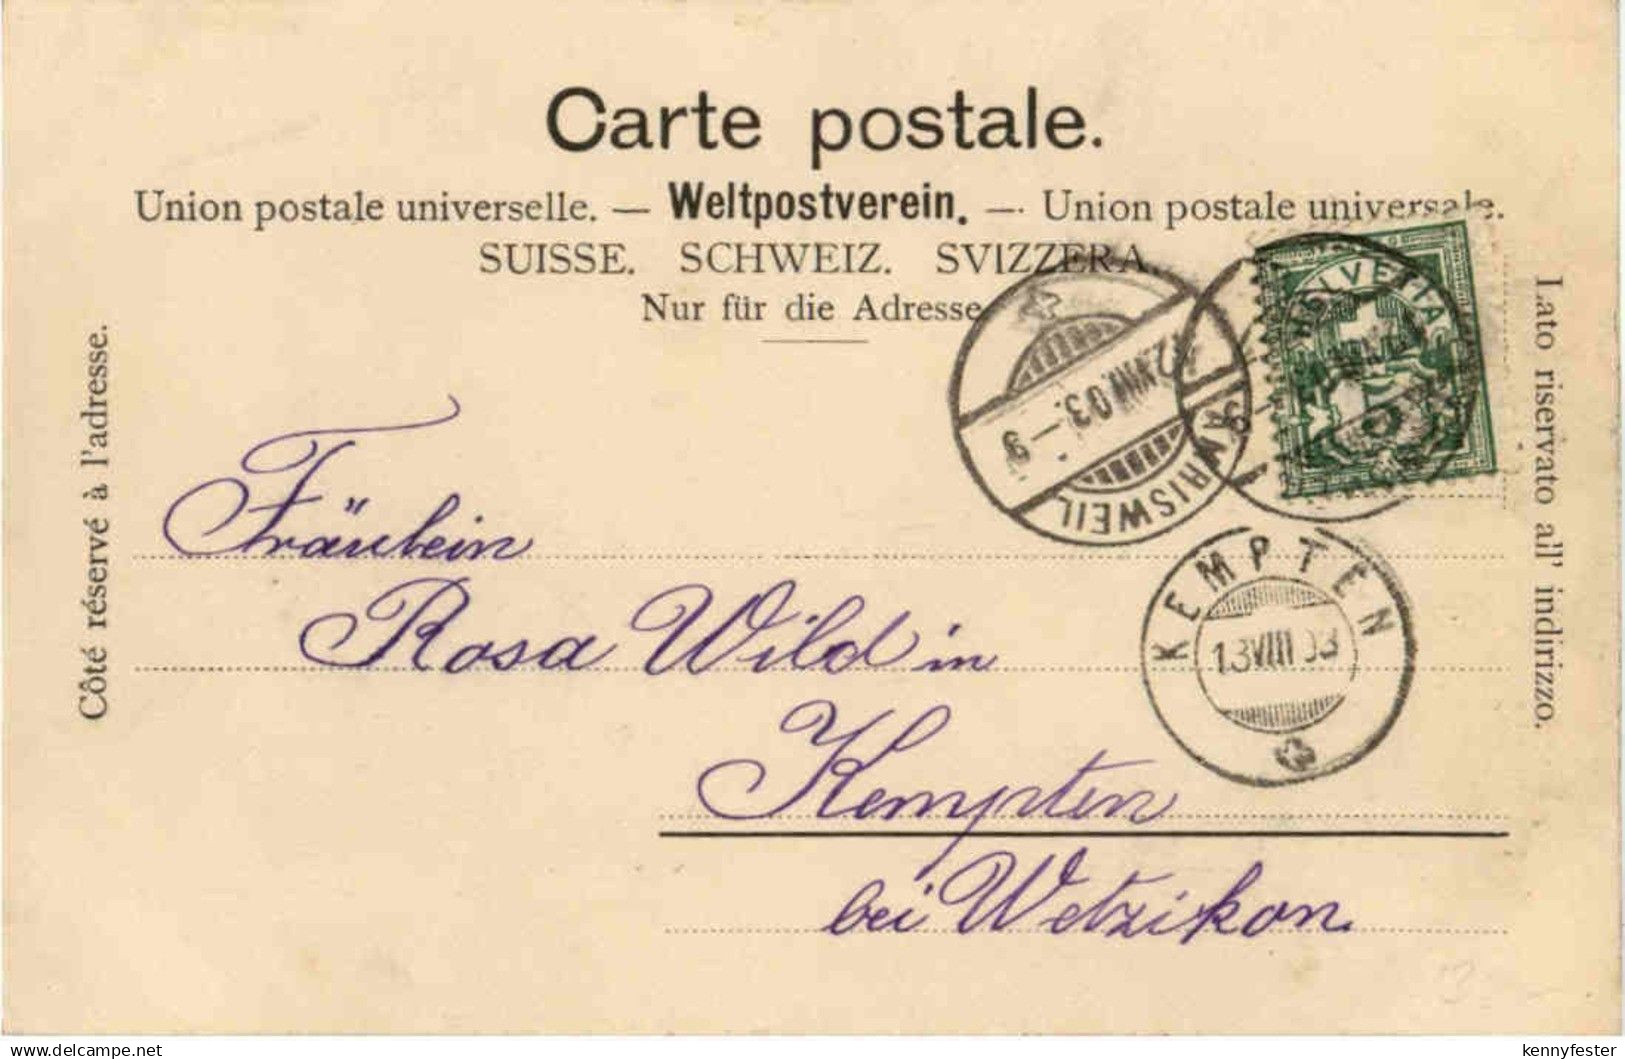 Carte postale.
Union postale universelle. — Weltpostverein. — Union postale universale.
SUISSE. SCHWEIZ. SVIZZERA.
Nur für die Adresse
Côté réservé à l'adresse.
Lato riservato all' indirizzo.
HELVETIA
12.VIII.03.—9
KEMPTEN
13 VIII 03
Fräulein
Rosa Wild in
Kempten
bei Wetzikon.
kennyfester